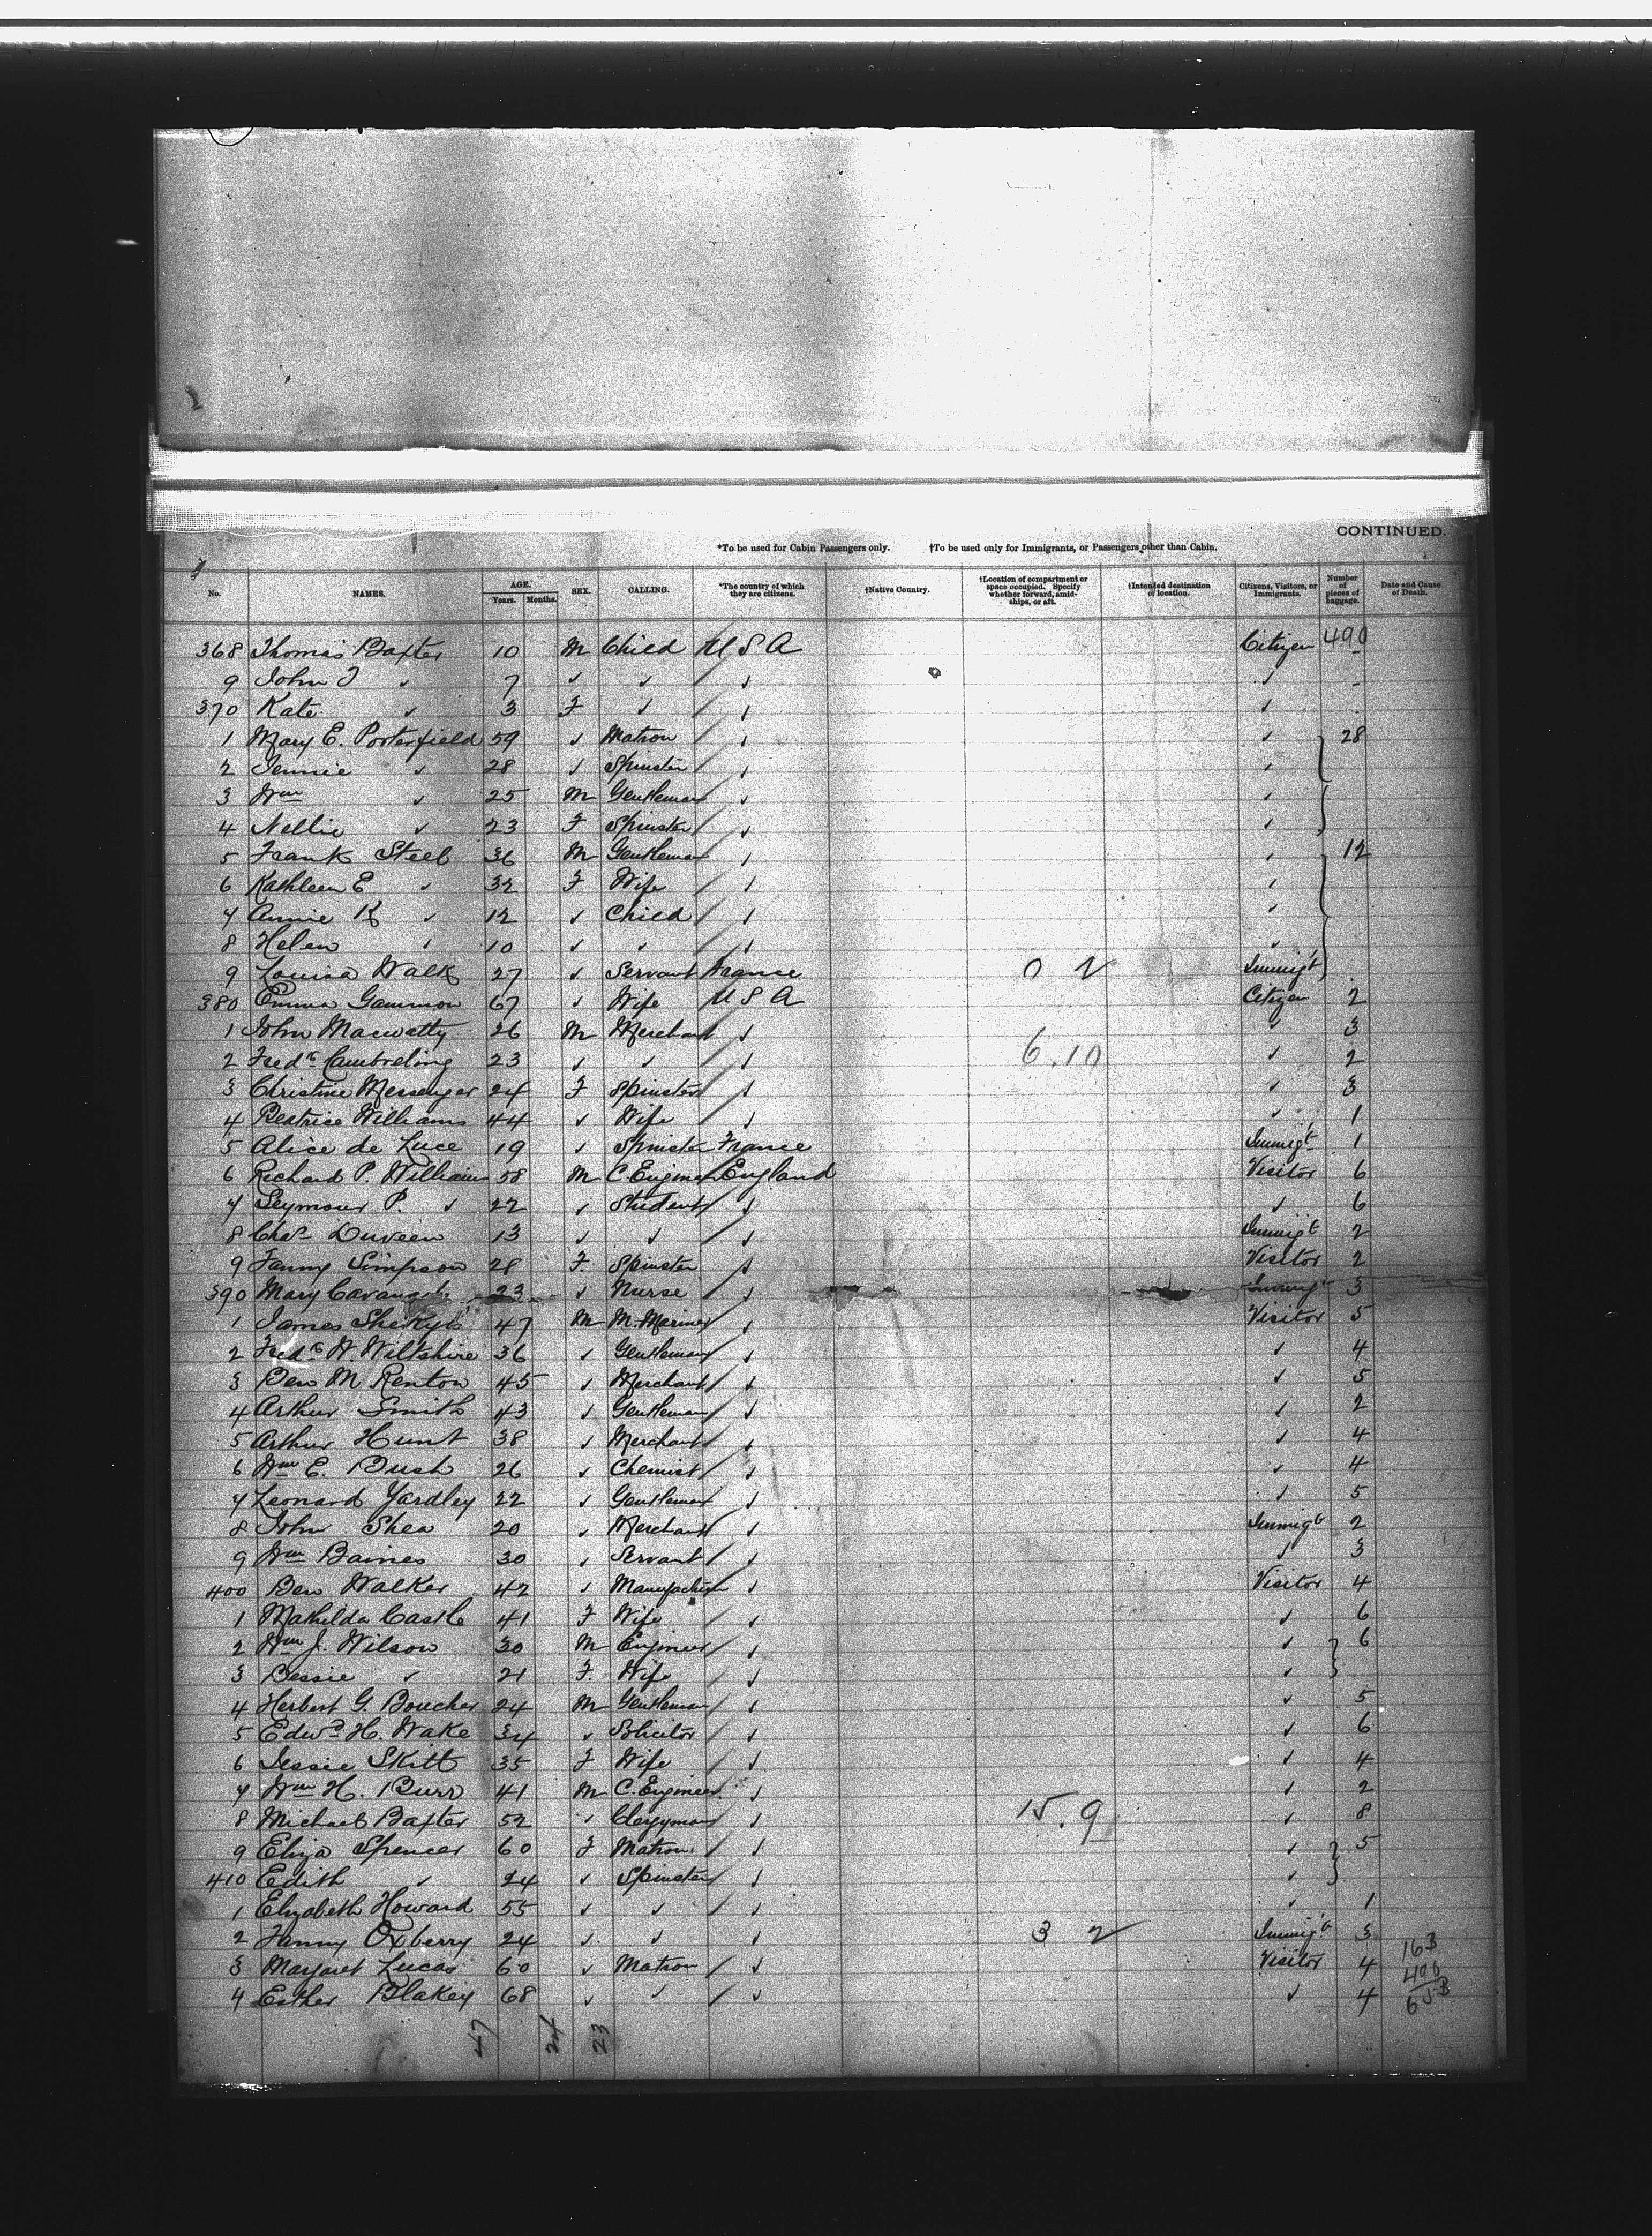 CONTINUED.
*To be used for Cabin Passengers only. †To be used only for Immigrants, or Passengers other than Cabin.
No. NAMES. AGE. Years. Months. SEX. CALLING. *The country of which they are citizens. †Native Country. †Location of compartment or space occupied. Specify whether forward, amidships, or aft. †Intended destination or location. Citizens, Visitors, or Immigrants. Number of pieces of baggage. Date and Cause of Death.
368 Thomas Baxter 10 M Child USA Citizen 490
9 John J ✓ 7 ✓ ✓ ✓ ✓ -
370 Kate ✓ 3 F ✓ ✓ ✓ -
1 Mary E. Porterfield 59 ✓ Matron ✓ ✓ 28
2 Jennie ✓ 28 ✓ Spinster ✓ ✓
3 Wm ✓ 25 M Gentleman ✓ ✓
4 Nellie ✓ 23 F Spinster ✓ ✓
5 Frank Steel 36 M Gentleman ✓ ✓ 12
6 Kathleen E ✓ 32 F Wife ✓ ✓
7 Annie K ✓ 12 ✓ Child ✓ ✓
8 Helen ✓ 10 ✓ ✓ ✓ ✓
9 Louisa Walk 27 ✓ Servant France 0 2 Immigt
380 Emma Gammon 67 ✓ Wife USA Citizen 2
1 John Macwatty 26 M Merchant ✓ ✓ 3
2 Fredk Cambreling 23 ✓ ✓ ✓ 6.10 ✓ 2
3 Christine Messenger 24 F Spinster ✓ ✓ 3
4 Beatrice Williams 44 ✓ Wife ✓ ✓ 1
5 Alice de Luce 19 ✓ Spinster France Immigt 1
6 Richard P. Williams 58 M C. Engineer England Visitor 6
7 Seymour P. ✓ 22 ✓ Student ✓ ✓ 6
8 Chas Duveen 13 ✓ ✓ ✓ Immigt 2
9 Fanny Simpson 28 F. Spinster ✓ Visitor 2
390 Mary 23 ✓ Nurse ✓ Immigt 3
1 James 47 M M. Mariner ✓ Visitor 5
2 Fredk W. Wiltshire 36 ✓ Gentleman ✓ ✓ 4
3 Ben M Renton 45 ✓ Merchant ✓ ✓ 5
4 Arthur Smith 43 ✓ Gentleman ✓ ✓ 2
5 Arthur Hunt 38 ✓ Merchant ✓ ✓ 4
6 Wm E. Bush 26 ✓ Chemist ✓ ✓ 4
7 Leonard Yardley 22 ✓ Gentleman ✓ ✓ 5
8 John Shea 20 ✓ Merchant ✓ Immigt 2
9 Wm Baines 30 ✓ Servant ✓ ✓ 3
400 Ben Walker 42 ✓ Manufacturer ✓ Visitor 4
1 Mathilda Castle 41 F Wife ✓ ✓ 6
2 Wm J. Wilson 30 M Engineer ✓ ✓ 6
3 Bessie ✓ 21 F. Wife ✓ ✓
4 Herbert G. Boucher 24 M Gentleman ✓ ✓ 5
5 Edwd H. Wake 34 ✓ Solicitor ✓ ✓ 6
6 Jessie Skitt 35 F Wife ✓ ✓ 4
7 Wm H. Burr 41 M C. Engineer ✓ ✓ 2
8 Michael Baxter 52 ✓ Clergyman ✓ 15.9 ✓ 8
9 Eliza Spencer 60 F Matron ✓ ✓ 5
410 Edith ✓ 24 ✓ Spinster ✓ ✓
1 Elizabeth Howard 55 ✓ ✓ ✓ ✓ 1
2 Fanny Oxberry 24 ✓ ✓ ✓ 3 2 Immigt 3
3 Margaret Lucas 60 ✓ Matron ✓ Visitor 4
4 Esther Blakey 68 ✓ ✓ ✓ ✓ 4
163
490
653
47 24 23